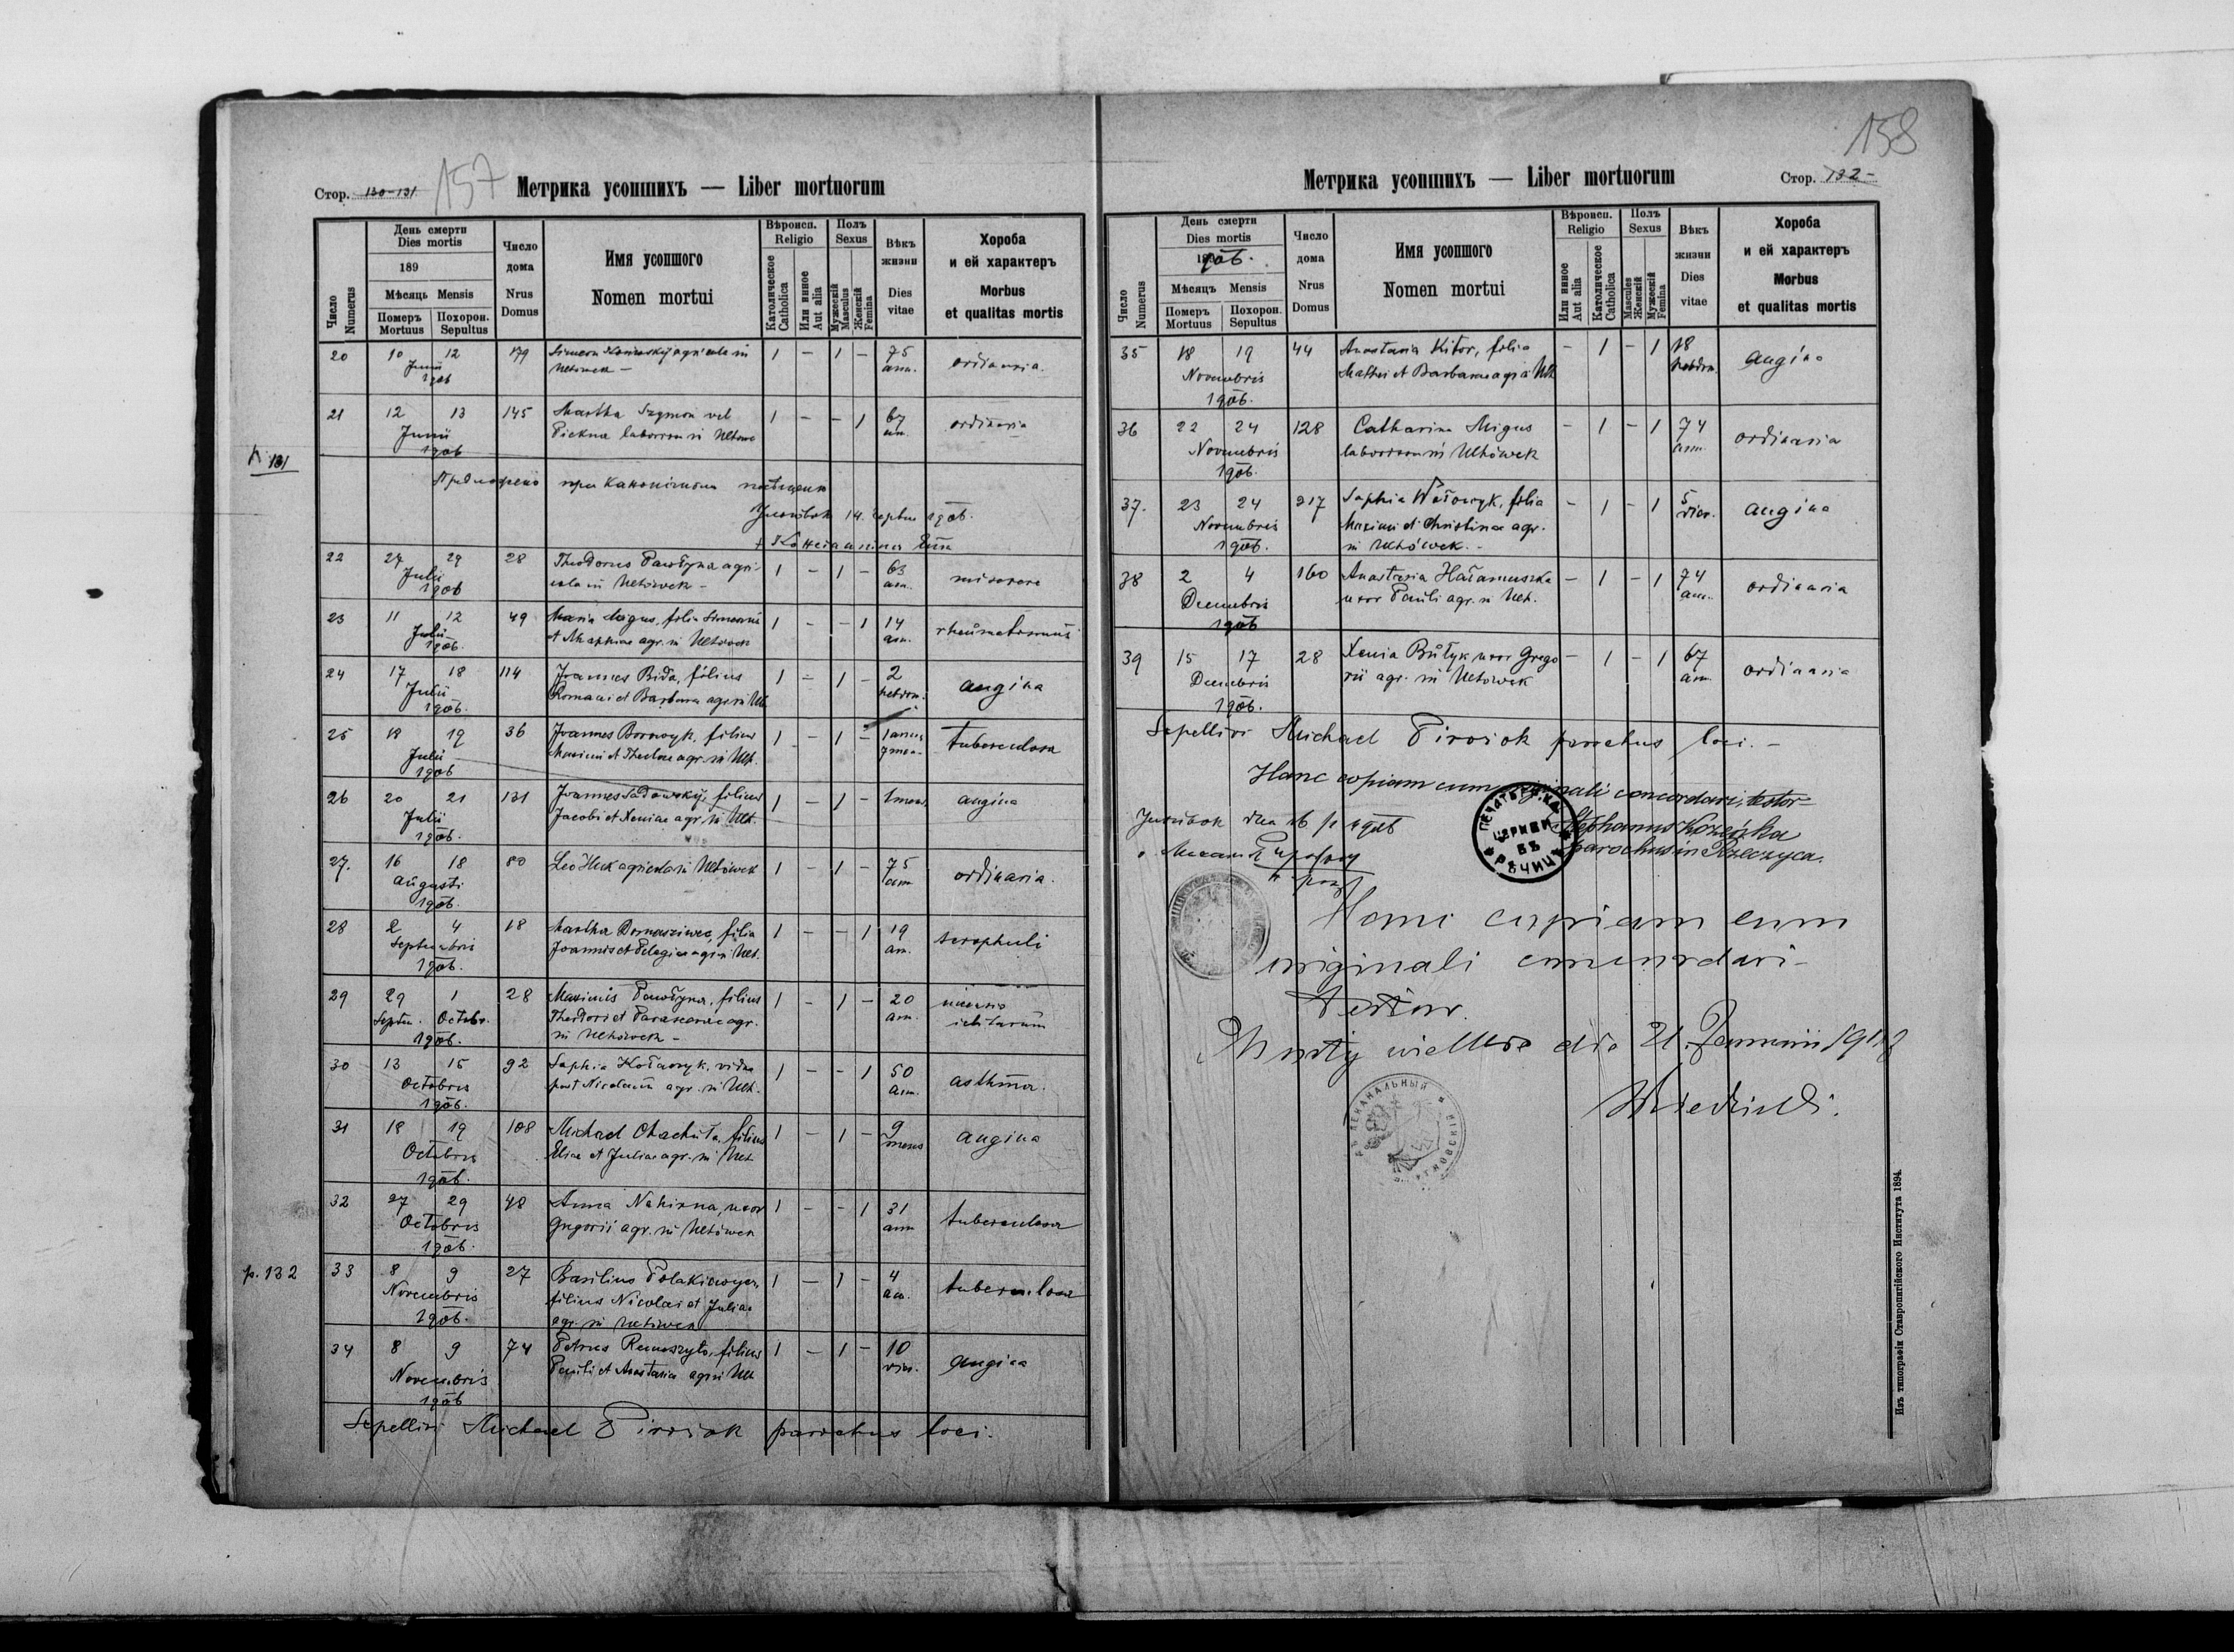 157
Стор. 130-131
Метрика усопшихъ — Liber mortuorum
Число Numerus
День смерти Dies mortis
189
Мѣсяць Mensis
Померъ Mortuus
Похорон. Sepultus
Число дома Nrus Domus
Имя усопшого Nomen mortui
Вѣроисп. Religio
Католическое Catholica
Или инное Aut alia
Полъ Sexus
Мужескій Masculus
Женскій Femina
Вѣкъ жизни Dies vitae
Хороба и ей характеръ Morbus et qualitas mortis
20 10 12 Junii 1906 179 Simeon agricola in Uhnówek — 1 — 1 — 75 ann. ordinaria.
21 12 13 Junii 1906 145 Martha Szymon vel Piekna laboriosa in Uhnówe 1 — — 1 67 ann. ordinaria
p. 131
Предложено при канонічном
14. 1906.
22 27 29 Julii 1906 28 Theodorus Pawłyna agricola in Uhnówek — 1 — 1 — 63 ann. miserere
23 11 12 Julii 1906. 49 Maria Migus, filia Simeonis et agr. in Uhnówek 1 — — 1 14 ann. rheumatismus
24 17 18 Julii 1906. 114 Joannes Bida, filius Romani et Barbara agr. in Uh 1 — 1 — 2 hebdom. angina
25 18 19 Julii 1906 36 Joannes Borowyk, filius Maximi et Theclae agr. in Uh. 1 — 1 — 1 annus 7 men. tuberculosa
26 20 21 Julii 1906. 131 Joannes Sadowskyj, filius Jacobi et Xeniae agr. in Uh. 1 — 1 — 1 mens. angina
27. 16 18 Augusti 1906. 80 Leo Huk agricola in Uhnówek 1 — 1 — 75 ann ordinaria.
28 2 4 Septembris 1906. 18 Martha Domasziwec, filia Joannis et Pelagiae agr. in Uh. 1 — — 1 19 an. scrophuli
29 29 1 Septem. Octobr. 1906. 28 Maximus Pawłyna, filius Theodori et Parascevae agr. in Uhnówek — 1 — 1 — 20 an.
30 13 15 Octobris 1906. 92 Sophia Kołaczyk, vidua post Nicolaum agr. in Uh. 1 — — 1 50 ann. asthma.
31 18 19 Octobris 1906. 108 Michael Chachuła, filius Eliae et Juliae agr. in Uh. 1 — 1 — 9 menses angina
32 27 29 Octobris 1906. 48 Anna Nahirna, uxor Gregorii agr. in Uhnówek 1 — — 1 31 ann tuberculosa
p. 132
33 8 9 Novembris 1906. 27 Basilius Polakiewycz, filius Nicolai et Juliae agr. in Uhnówek 1 — 1 — 4 an. tuberculosa
34 8 9 Novembris 1906 74 Petrus Remeszyło, filius Pauli et Anastasiae agr. in Uh 1 — 1 — 10 dies. angina
Sepelivi Michael Pirożok parochus loci.
158
Метрика усопшихъ — Liber mortuorum
Стор. 132 -
Число Numerus
День смерти Dies mortis
1906.
Мѣсяцъ Mensis
Померъ Mortuus
Похорон. Sepultus
Число дома Nrus Domus
Имя усопшого Nomen mortui
Вѣроисп. Religio
Или инное Aut alia
Католическое Catholica
Полъ Sexus
Masculus Женскій
Мужескій Femina
Вѣкъ жизни Dies vitae
Хороба и ей характеръ Morbus et qualitas mortis
35 18 19 Novembris 1906. 44 Anastasia Kitor, filia Mathei et Barbarae agr. in Uh — 1 — 1 18 hebdom. angina
36 22 24 Novembris 1906. 128 Catharina Migus laboriosa in Uhnówek — 1 — 1 74 ann. ordinaria
37. 23 24 Novembris 1906. 217 Sophia Wołoczyk, filia Maximi et Christinae agr. in Uhnówek. — — 1 — 1 5 dies. angina
38 2 4 Decembris 1906 160 Anastasia Hałamuszka uxor Pauli agr. in Uh. — 1 — 1 74 ann. ordinaria
39 15 17 Decembris 1906. 28 Xenia Bułyk uxor Gregorii agr. in Uhnówek — 1 — 1 67 an. ordinaria
Sepelivi Michael Pirożok parochus loci. —
Hanc copiam cum originali concordari, testor
Stephanus Kozeńka
parochus in Rzeczyca.
ПЕЧАТЬ ГР. КА. ЦЕРКВИ ВЪ РѢЧИЦИ
Hanc copiam cum
originali concordari
testor.
Mosty wielkie die 21. Januarii
Изъ типографіи Ставропигійского Института 1894.